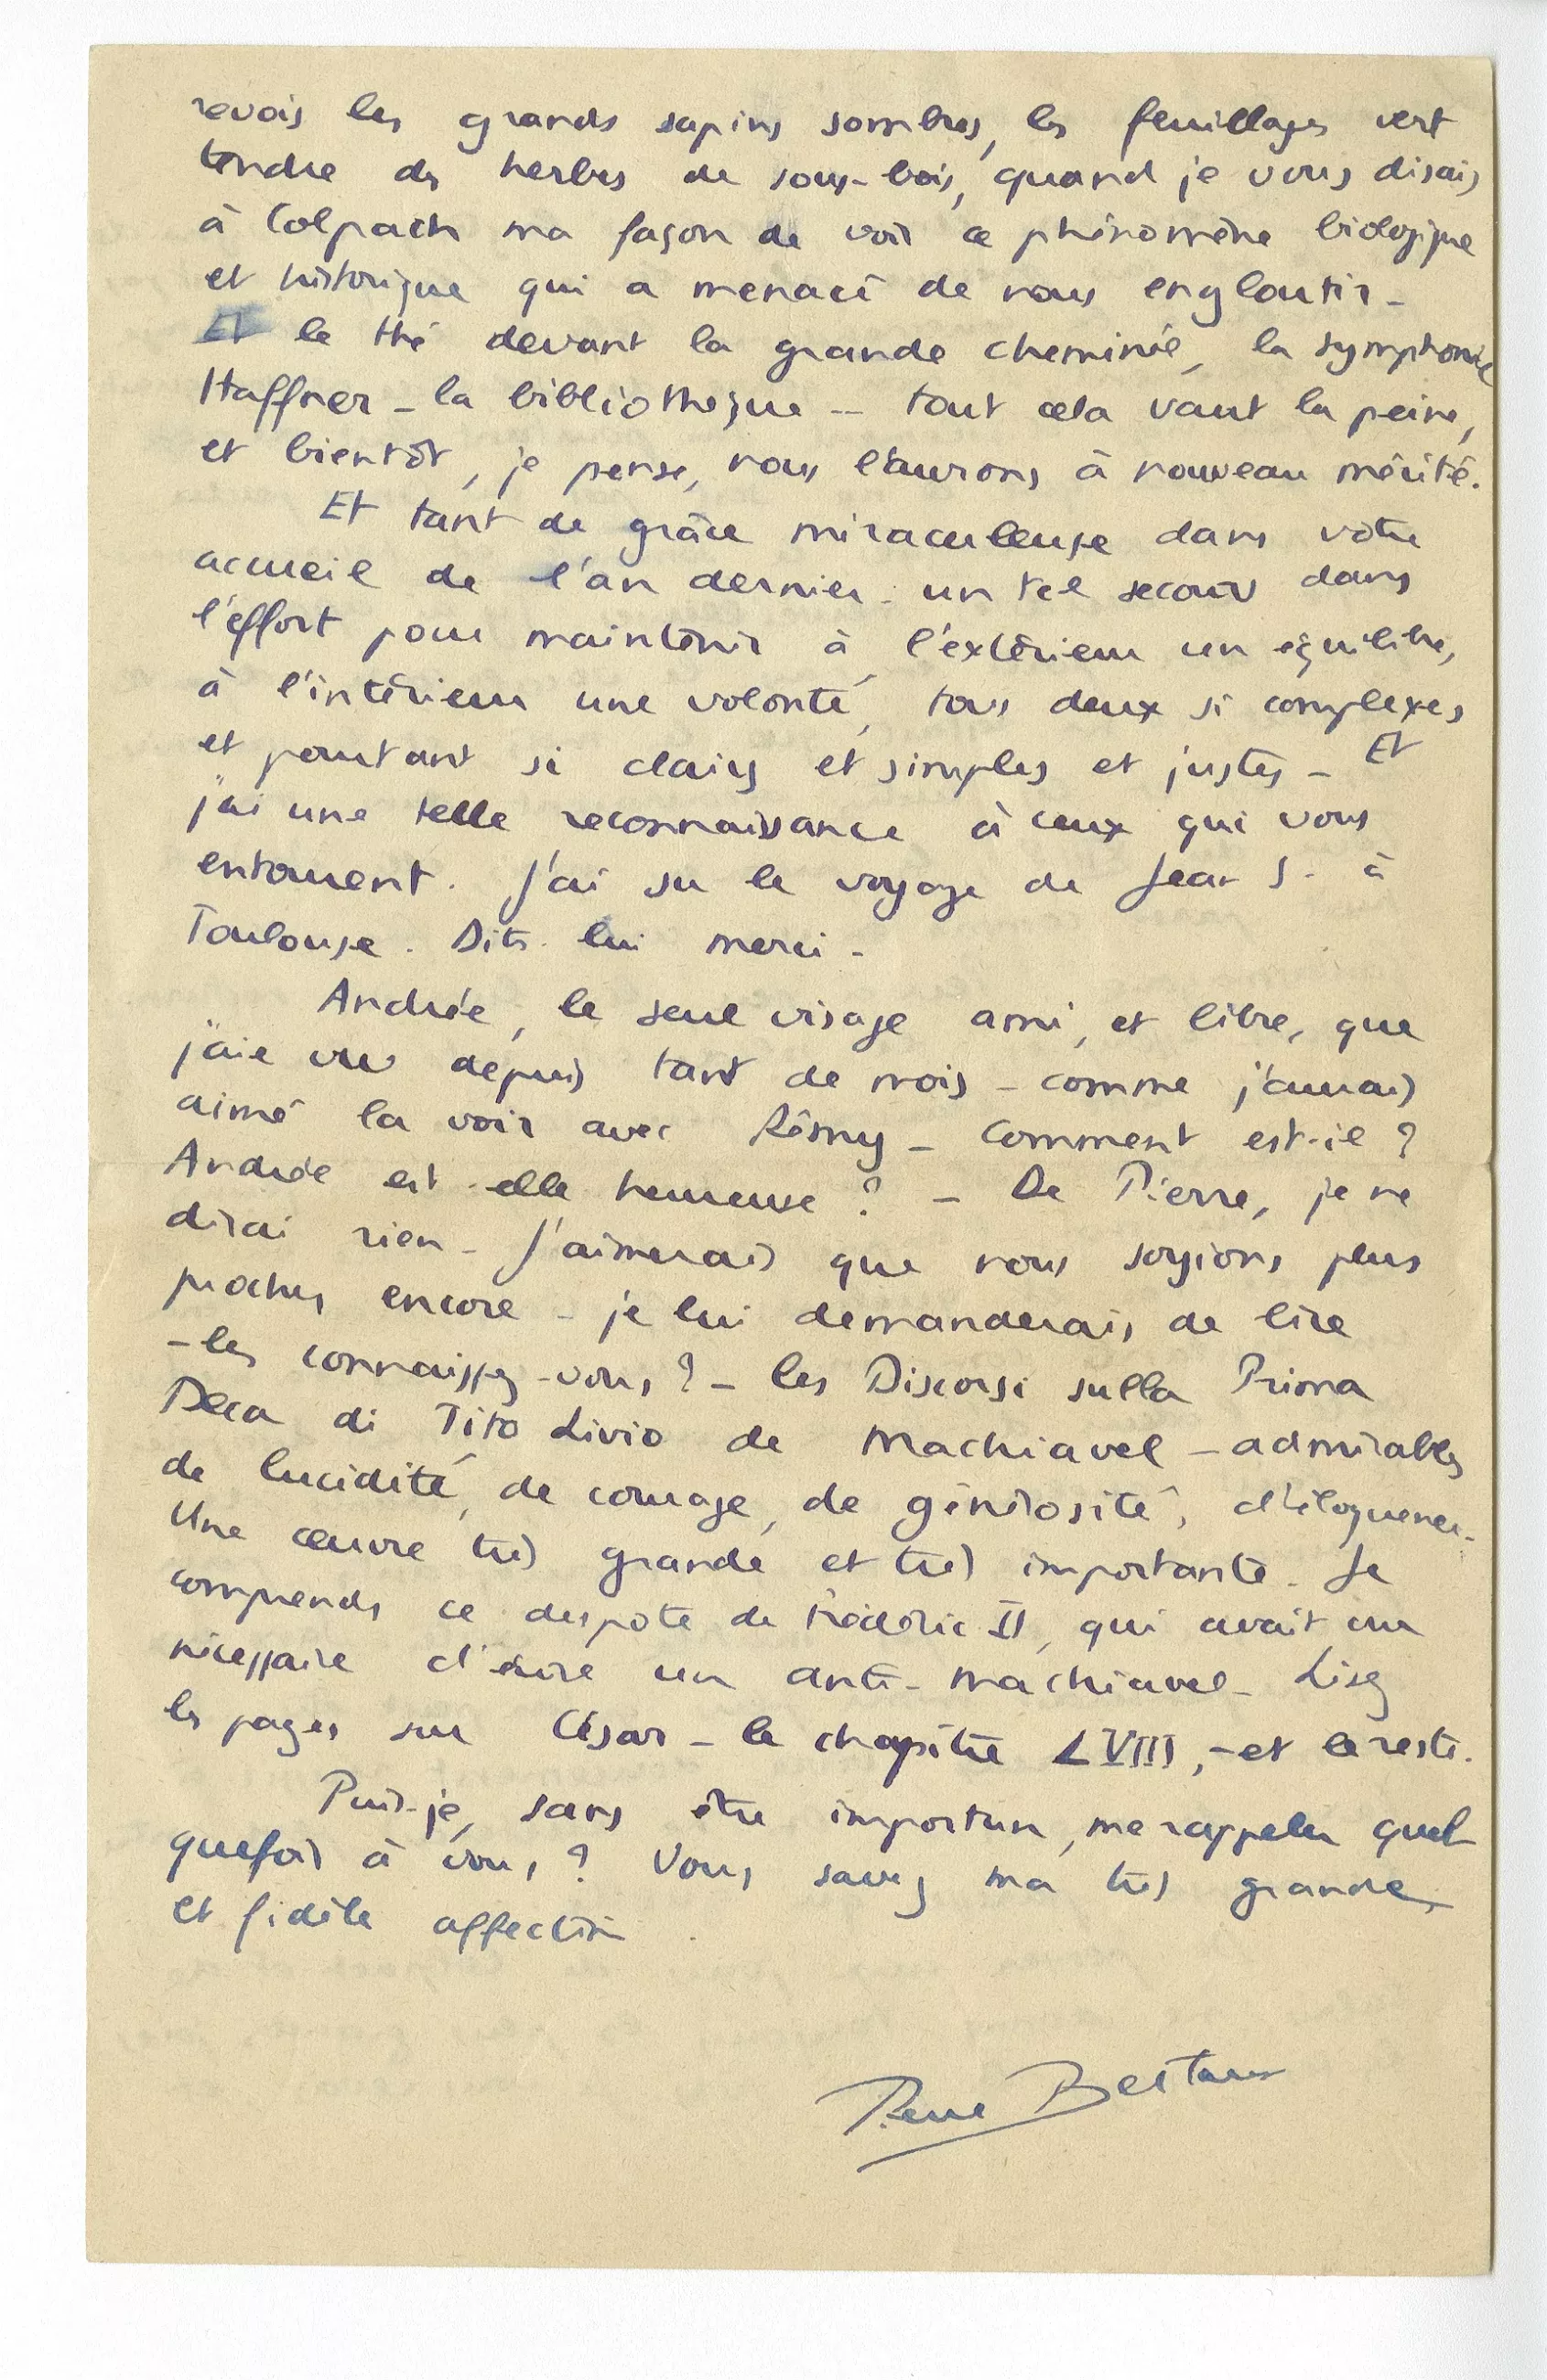 revois les grands sapins sombres, les feuillages vert
tendre des herbes de sous-bois, quand je vous disais
à Colpach ma façon de voir ce phénomène biologique
et historique qui a menacé de nous engloutir -
Et le thé devant la grande cheminée, la symphonie
Haffner - la bibliothèque - tout cela vaut la peine,
et bientôt, je pense, nous l'aurons à nouveau mérité.
Et tant de grâce miraculeuse dans votre
accueil de l'an dernier. un tel secours dans
l'effort pour maintenir à l'extérieur un équilibre,
à l'intérieur une volonté, tous deux si complexes
et pourtant si clairs et simples et justes - Et
j'ai une telle reconnaissance à ceux qui vous
entourent. J'ai su le voyage de Jean S. à
Toulouse. Dites-lui merci -
Andrée, le seul visage ami, et libre, que
j'aie vu depuis tant de mois - comme j'aurais
aimé la voir avec Rémy - Comment est-il ?
Andrée est-elle heureuse ? - De Pierre, je ne
dirai rien - J'aimerais que nous soyions plus
proches encore - je lui demanderais de lire
- les connaissez-vous ? - les Discorsi sulla Prima
Deca di Tito Livio de Machiavel - admirables
de lucidité, de courage, de générosité, d'éloquence -
Une œuvre très grande et très importante. Je
comprends ce despote de Frédéric II, qui avait cru
nécessaire d'écrire un anti-Machiavel - Lisez
les pages sur César - le chapitre LVIII, - et le reste.
Puis-je, sans être importun, me rappeler quel-
quefois à vous ? Vous savez ma très grande
et fidèle affection.
René